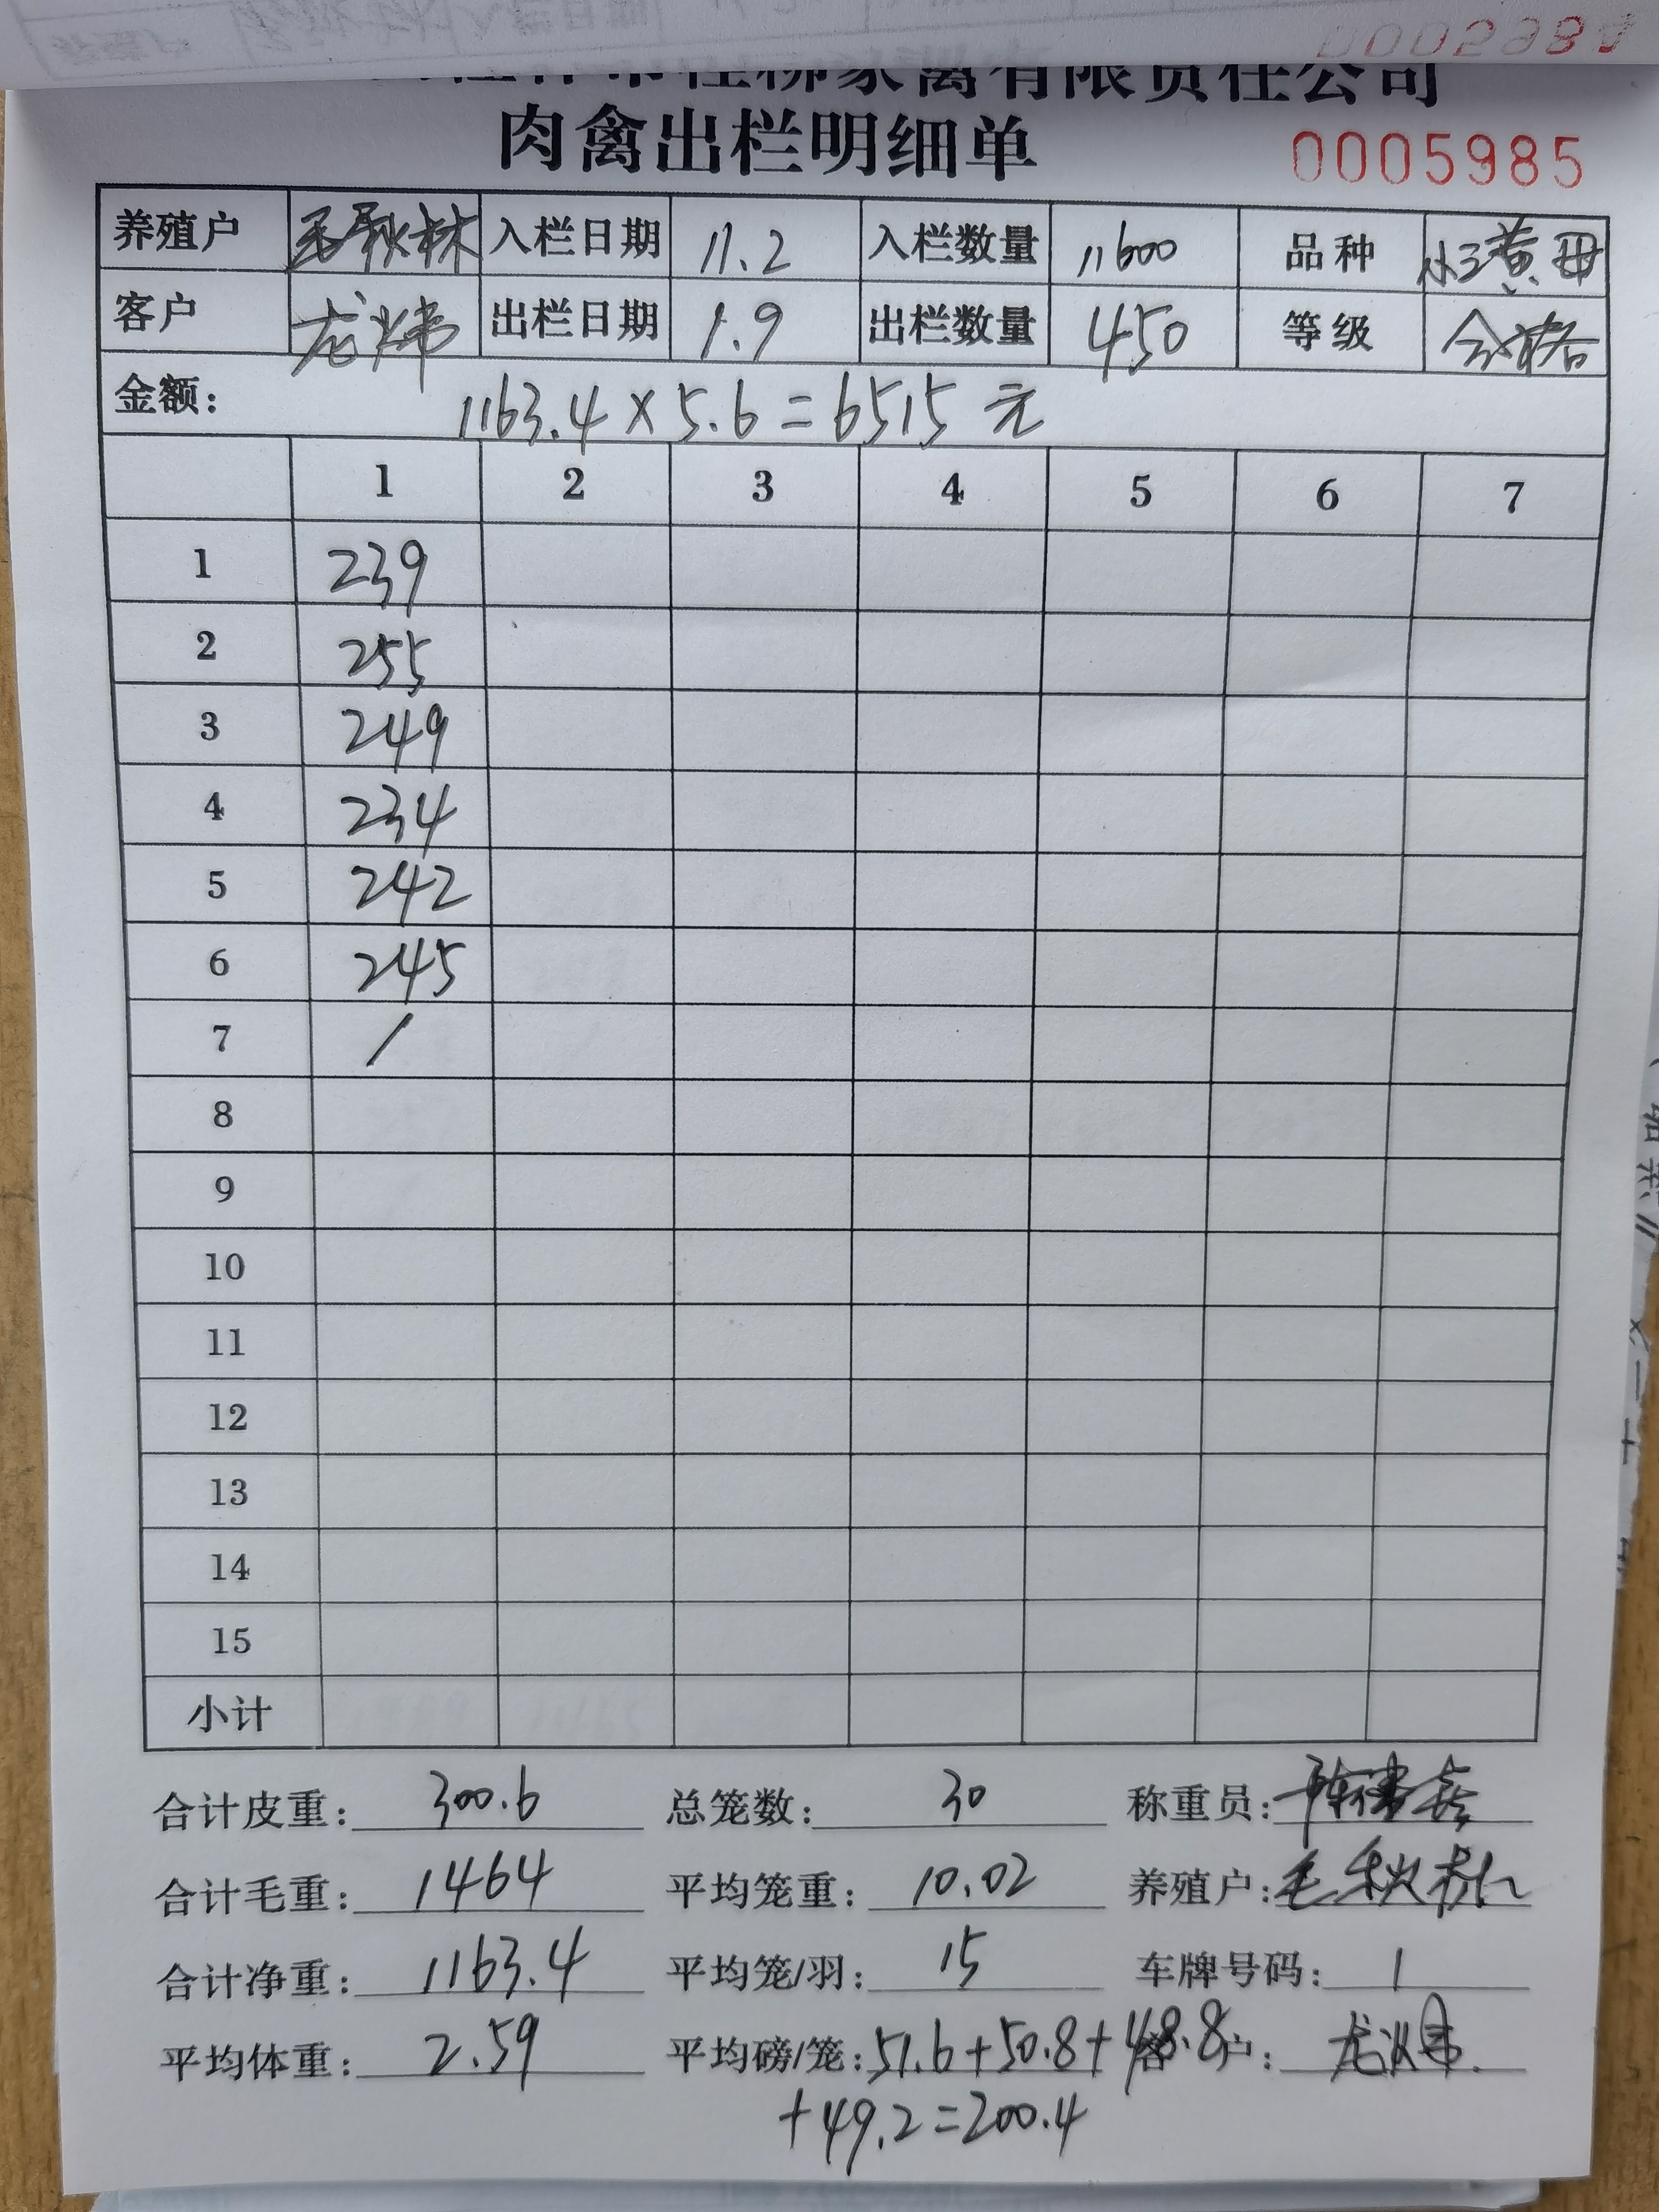 桂林市桂柳家禽有限责任公司
肉禽出栏明细单 0005985
养殖户 毛秋林 入栏日期 11.2 入栏数量 11600 品种 小三黄母
客户 龙炜 出栏日期 1.9 出栏数量 450 等级 合格
金额: 1163.4×5.6=6515元
1 2 3 4 5 6 7
1 239
2 255
3 249
4 234
5 242
6 245
7 /
8
9
10
11
12
13
14
15
小计
合计皮重: 300.6 总笼数: 30 称重员:
合计毛重: 1464 平均笼重: 10.02 养殖户: 毛秋林
合计净重: 1163.4 平均笼/羽: 15 车牌号码: 1
平均体重: 2.59 平均磅/笼: 51.6+50.8+48.8 客户: 龙炜
+49.2=200.4